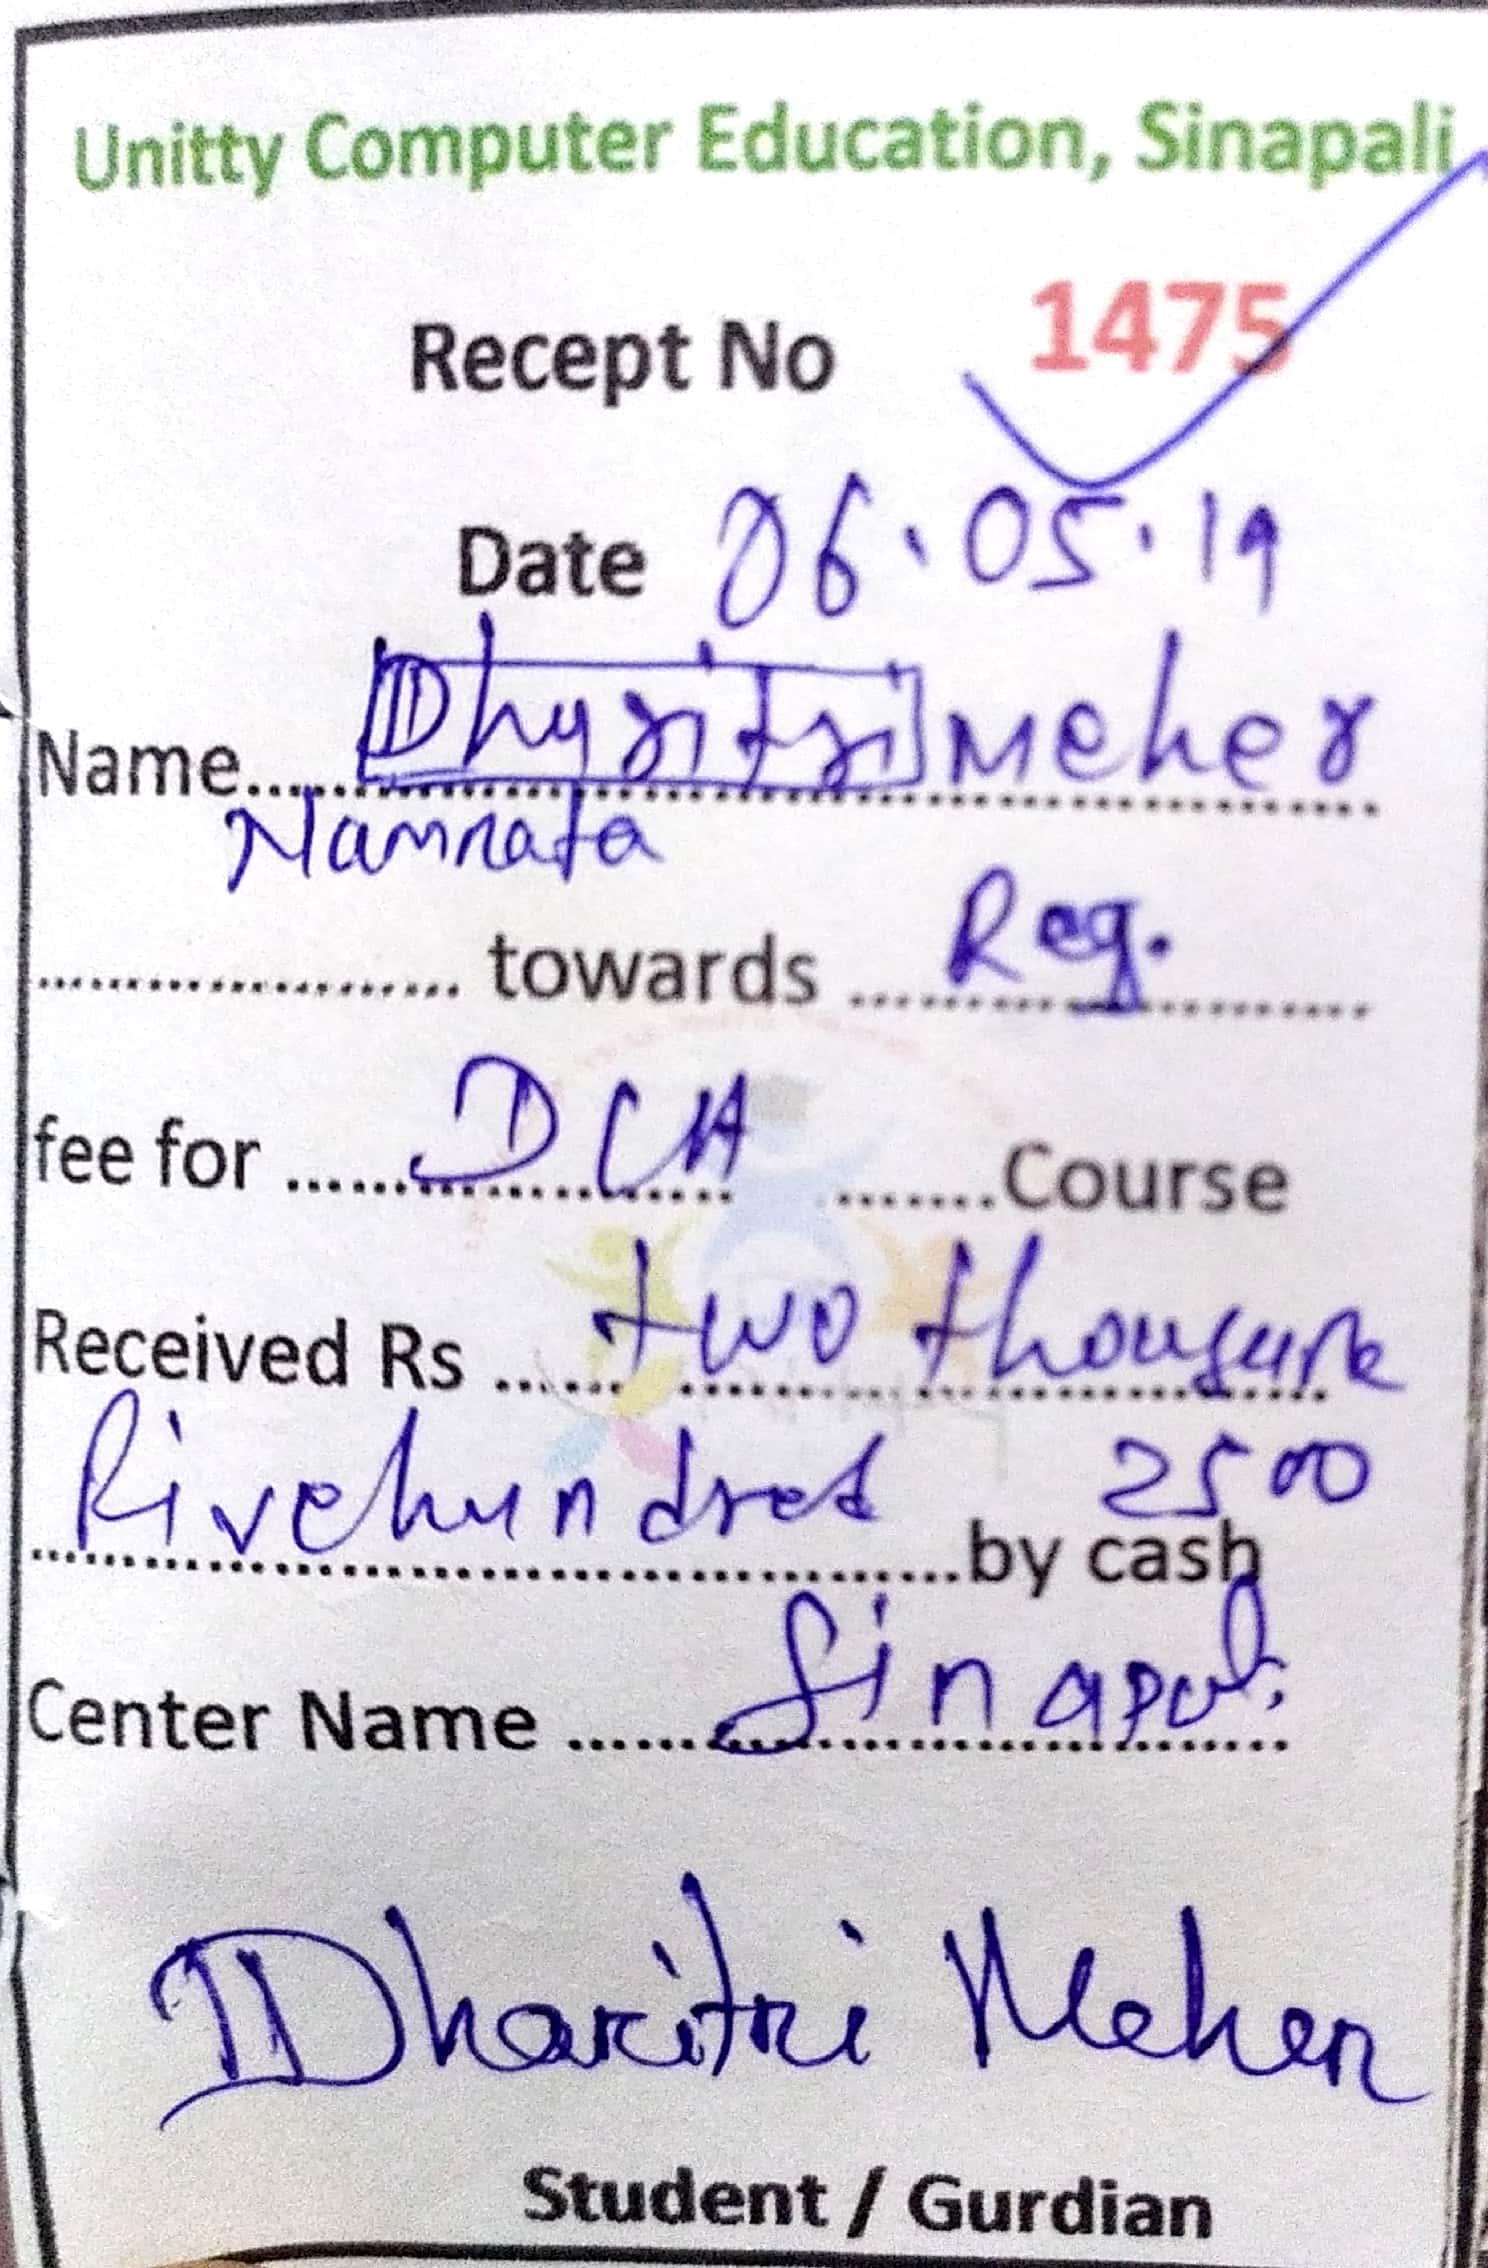 Unitty Computer Education, Sinapali
Recept No 1475
Date 06.05.19
Name..... Dhyritri Meher
Namrata
.................... towards ... Reg.
fee for ...... DCA ........Course
Received Rs ...... two thousand
Fivehundred 2500
........................................by cash
Center Name ...... Sinapali
Dharitri Meher
Student / Gurdian